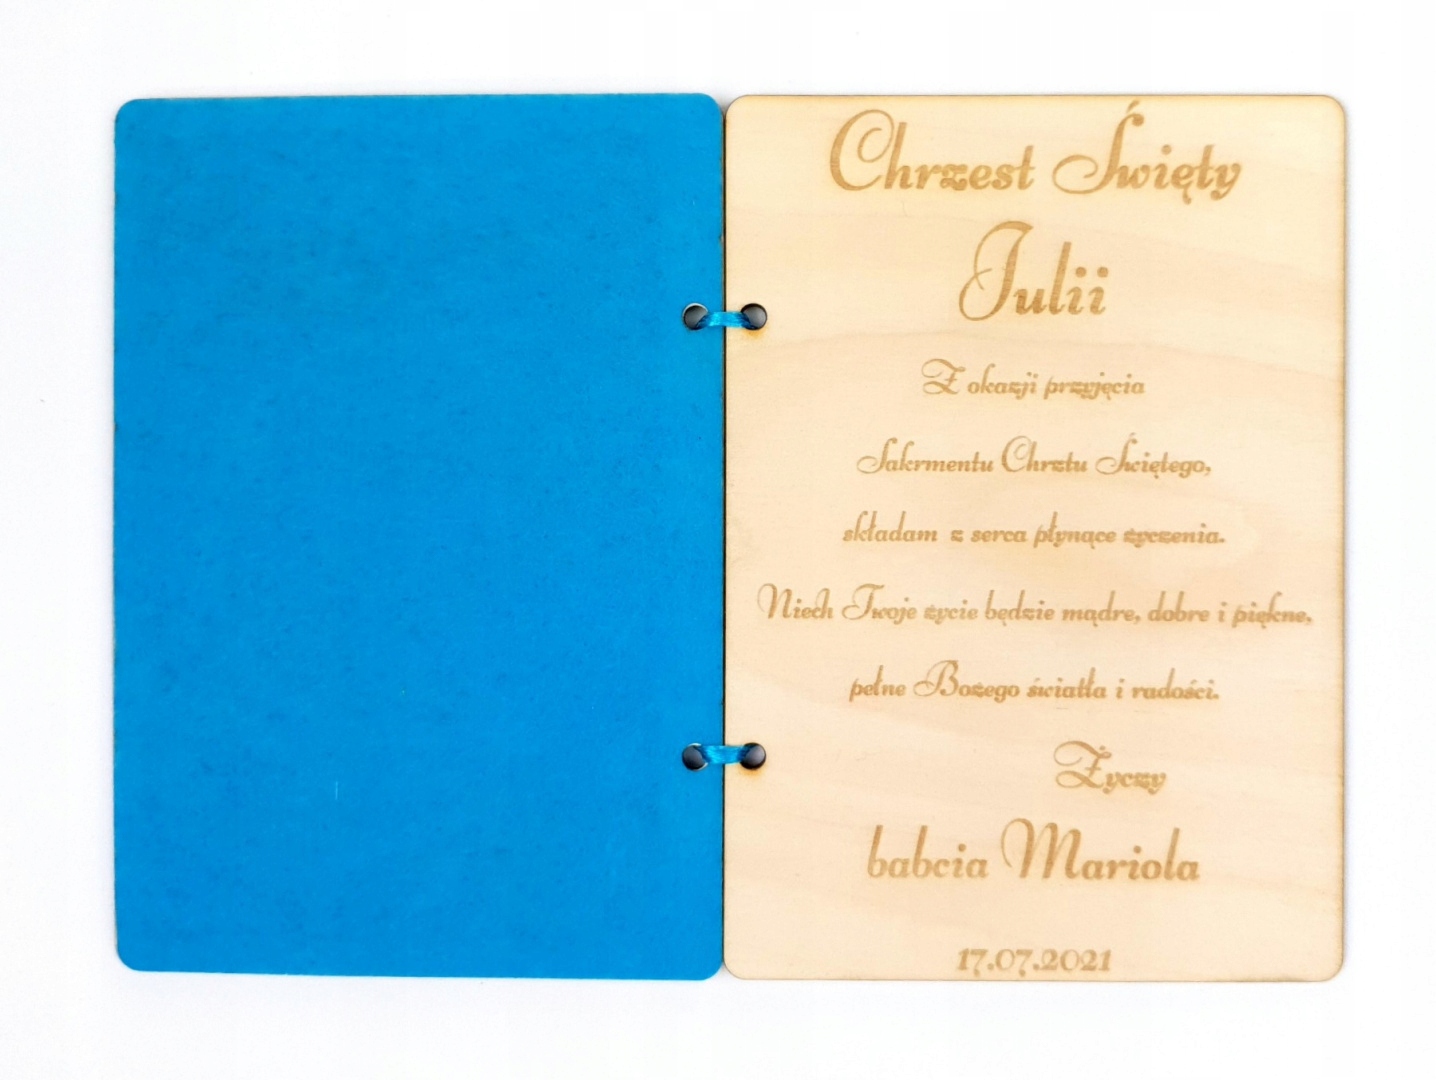 Chrzest Święty
Julii
Z okazji przyjęcia
Sakrmentu Chrztu Świętego,
składam z serca płynące życzenia.
Niech Twoje życie będzie mądre, dobre i piękne,
pełne Bożego światła i radości.
Życzy
babcia Mariola
17.07.2021